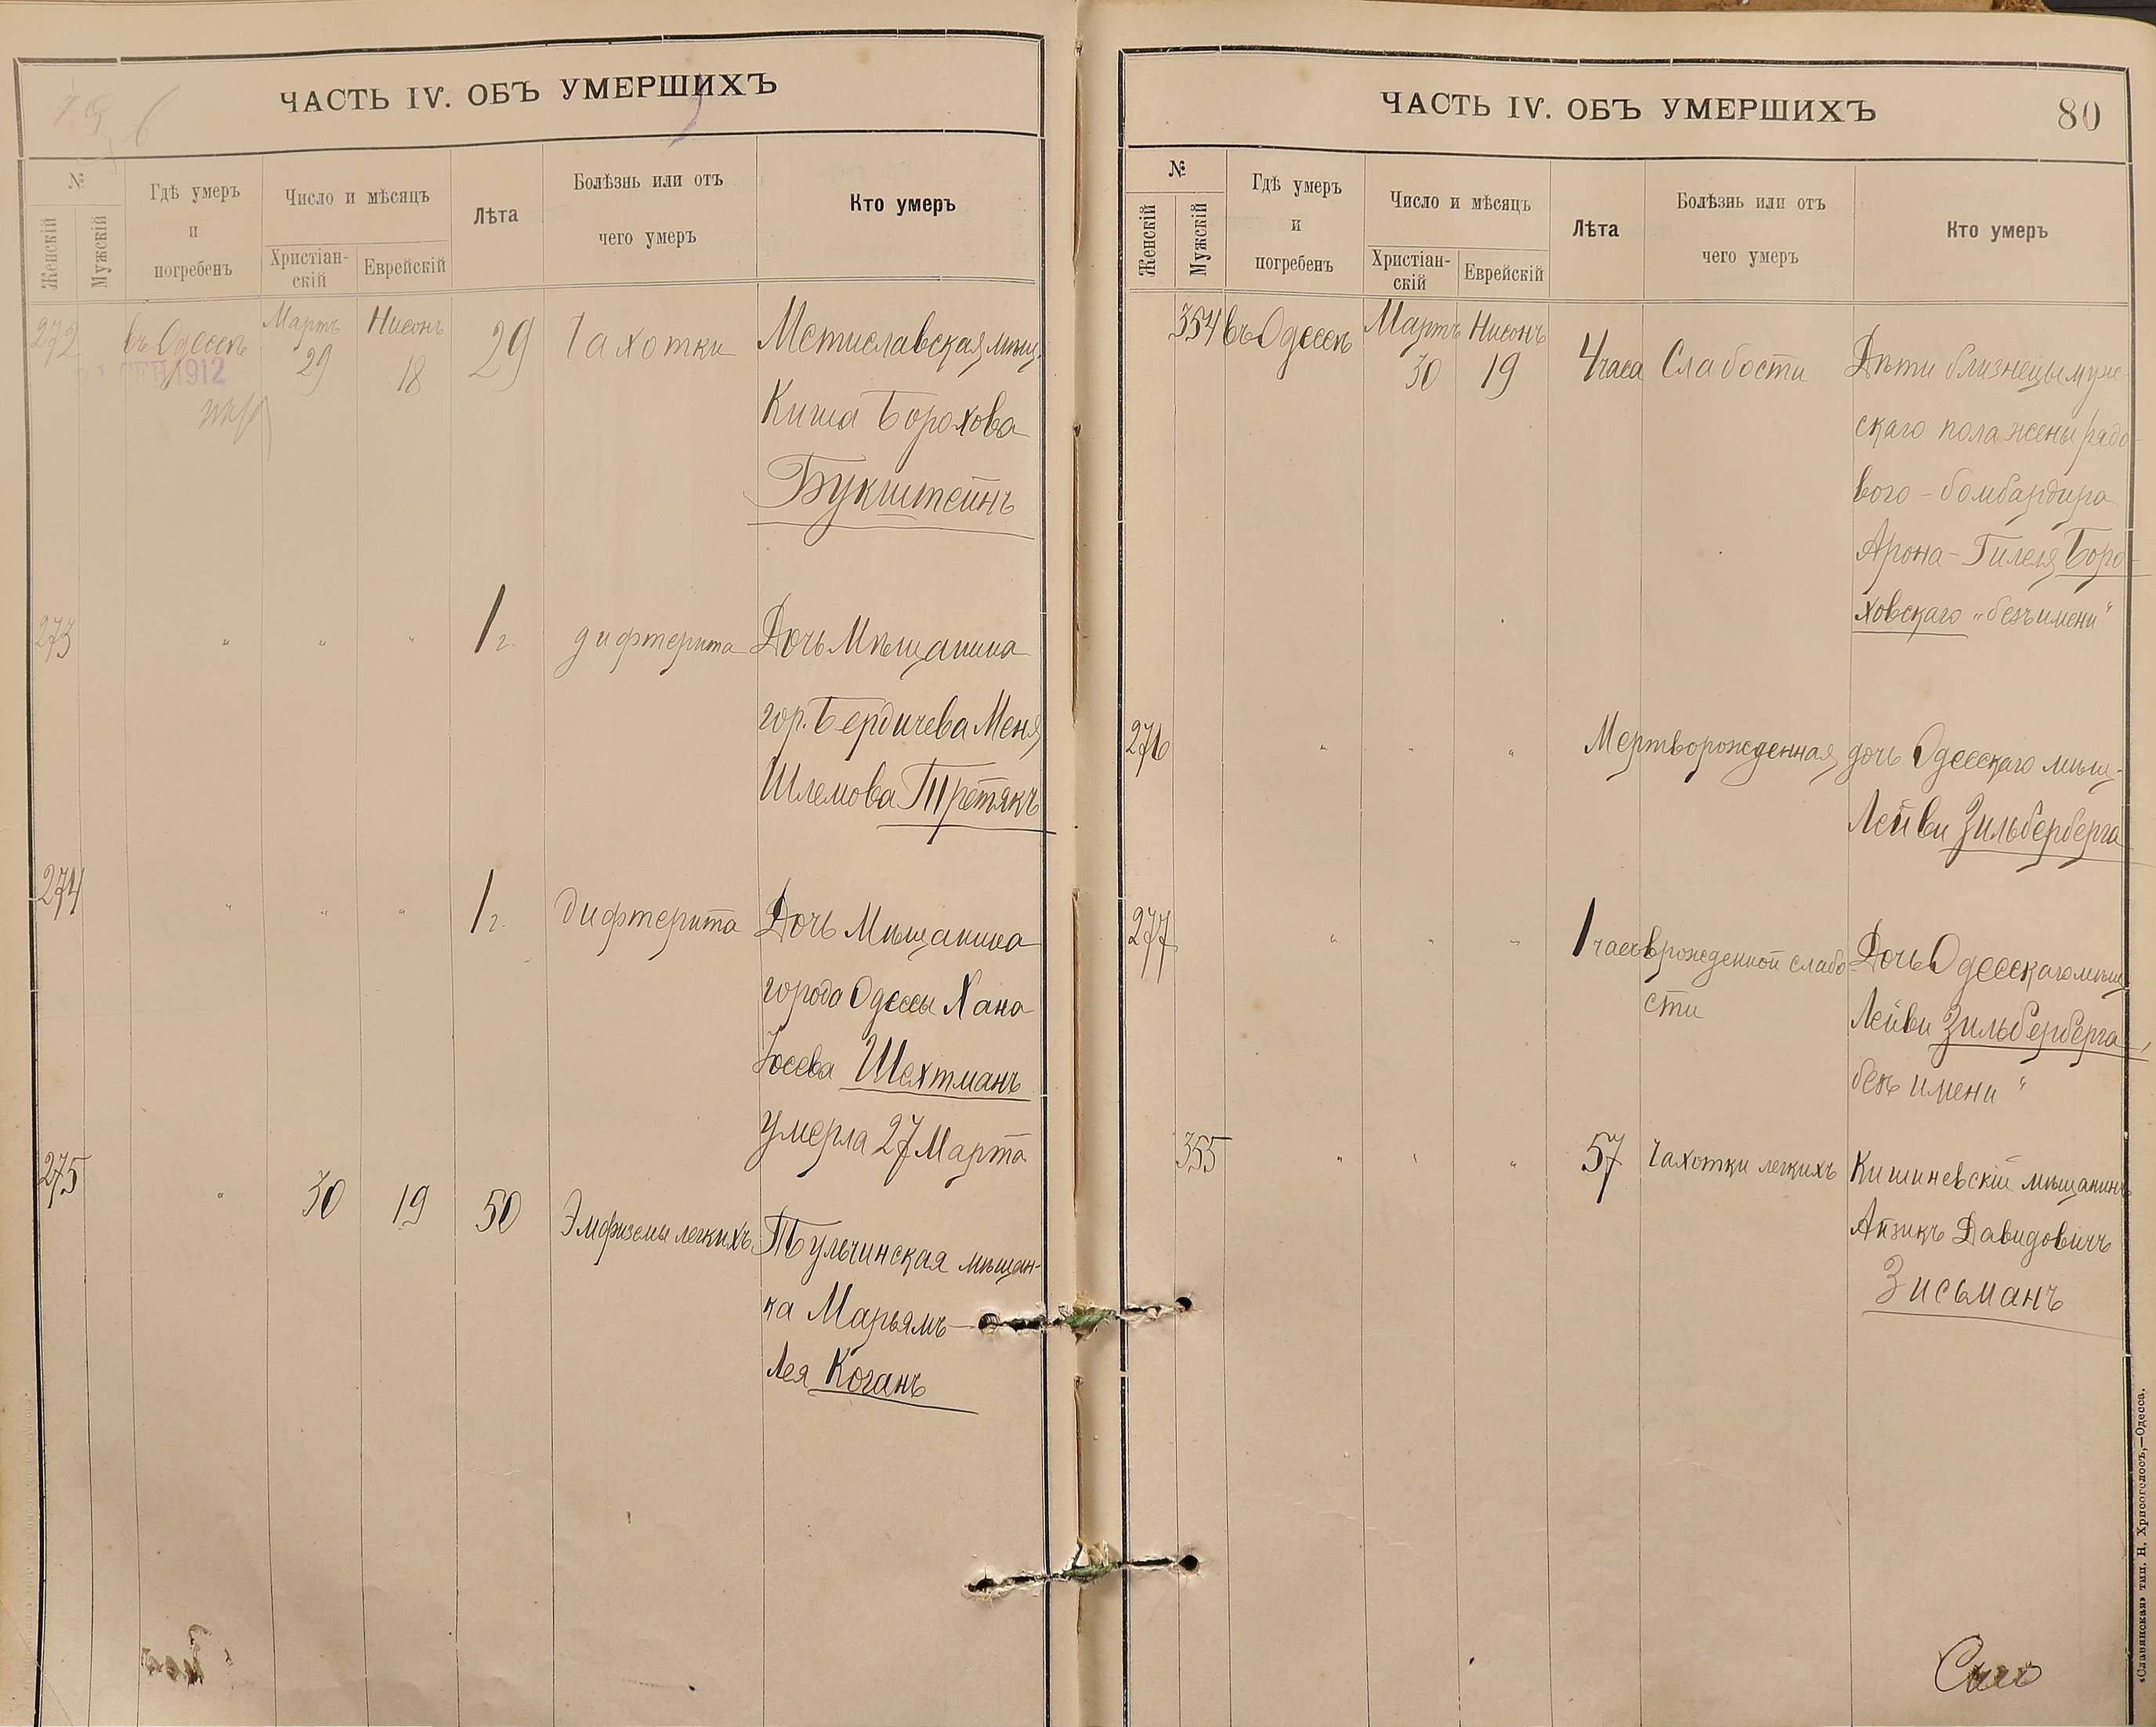 ЧАСТЬ IV. ОБЪ УМЕРШИХЪ
№
Женскій
Мужскій
Гдѣ умеръ
и
погребенъ
Число и мѣсяцъ
Христіан-
скій
Еврейскій
Лѣта
Болѣзнь или отъ
чего умеръ
Кто умеръ
272 въ Одессѣ Мартъ 29 Нисонъ 18 29 Чахотки Мстиславская мѣщ.
21 СЕН 1912
Киша Борохова
Букштейнъ
273 " " " 1 г. дифтерита Дочь Мѣщанина
гор. Бердичева Меня
Шлемова Третякъ
274 " " " 1 г. дифтерита Дочь Мѣщанина
города Одессы Хана
Іосева Шехтманъ
умерла 27 Марта
275 " 30 19 50 Эмфиземы легкихъ Тульчинская мѣщан-
ка Марьямъ-
Лея Коганъ
ЧАСТЬ IV. ОБЪ УМЕРШИХЪ
80
№
Женскій
Мужскій
Гдѣ умеръ
и
погребенъ
Число и мѣсяцъ
Христіан-
скій
Еврейскій
Лѣта
Болѣзнь или отъ
чего умеръ
Кто умеръ
354 въ Одессѣ Мартъ 30 Нисонъ 19 4 часа Слабости Дѣти близнецы муж-
скаго пола жены рядо-
вого-бомбардира
Арона-Гилеля Боро-
ховскаго "безъ имени"
276 " " " Мертворожденная дочь Одесскаго мѣщ-
Лейви Зильберберга
277 " " " 1 часъ врожденной слабо- Дочь Одесскаго мѣщ
сти Лейви Зильберберга,
безъ имени "
355 " " " 57 Чахотки легкихъ Кишиневскій мѣщанинъ
Айзикъ Давидовичъ
Зисьманъ
«Славянская» тип. Н. Хрисогелосъ,—Одесса.